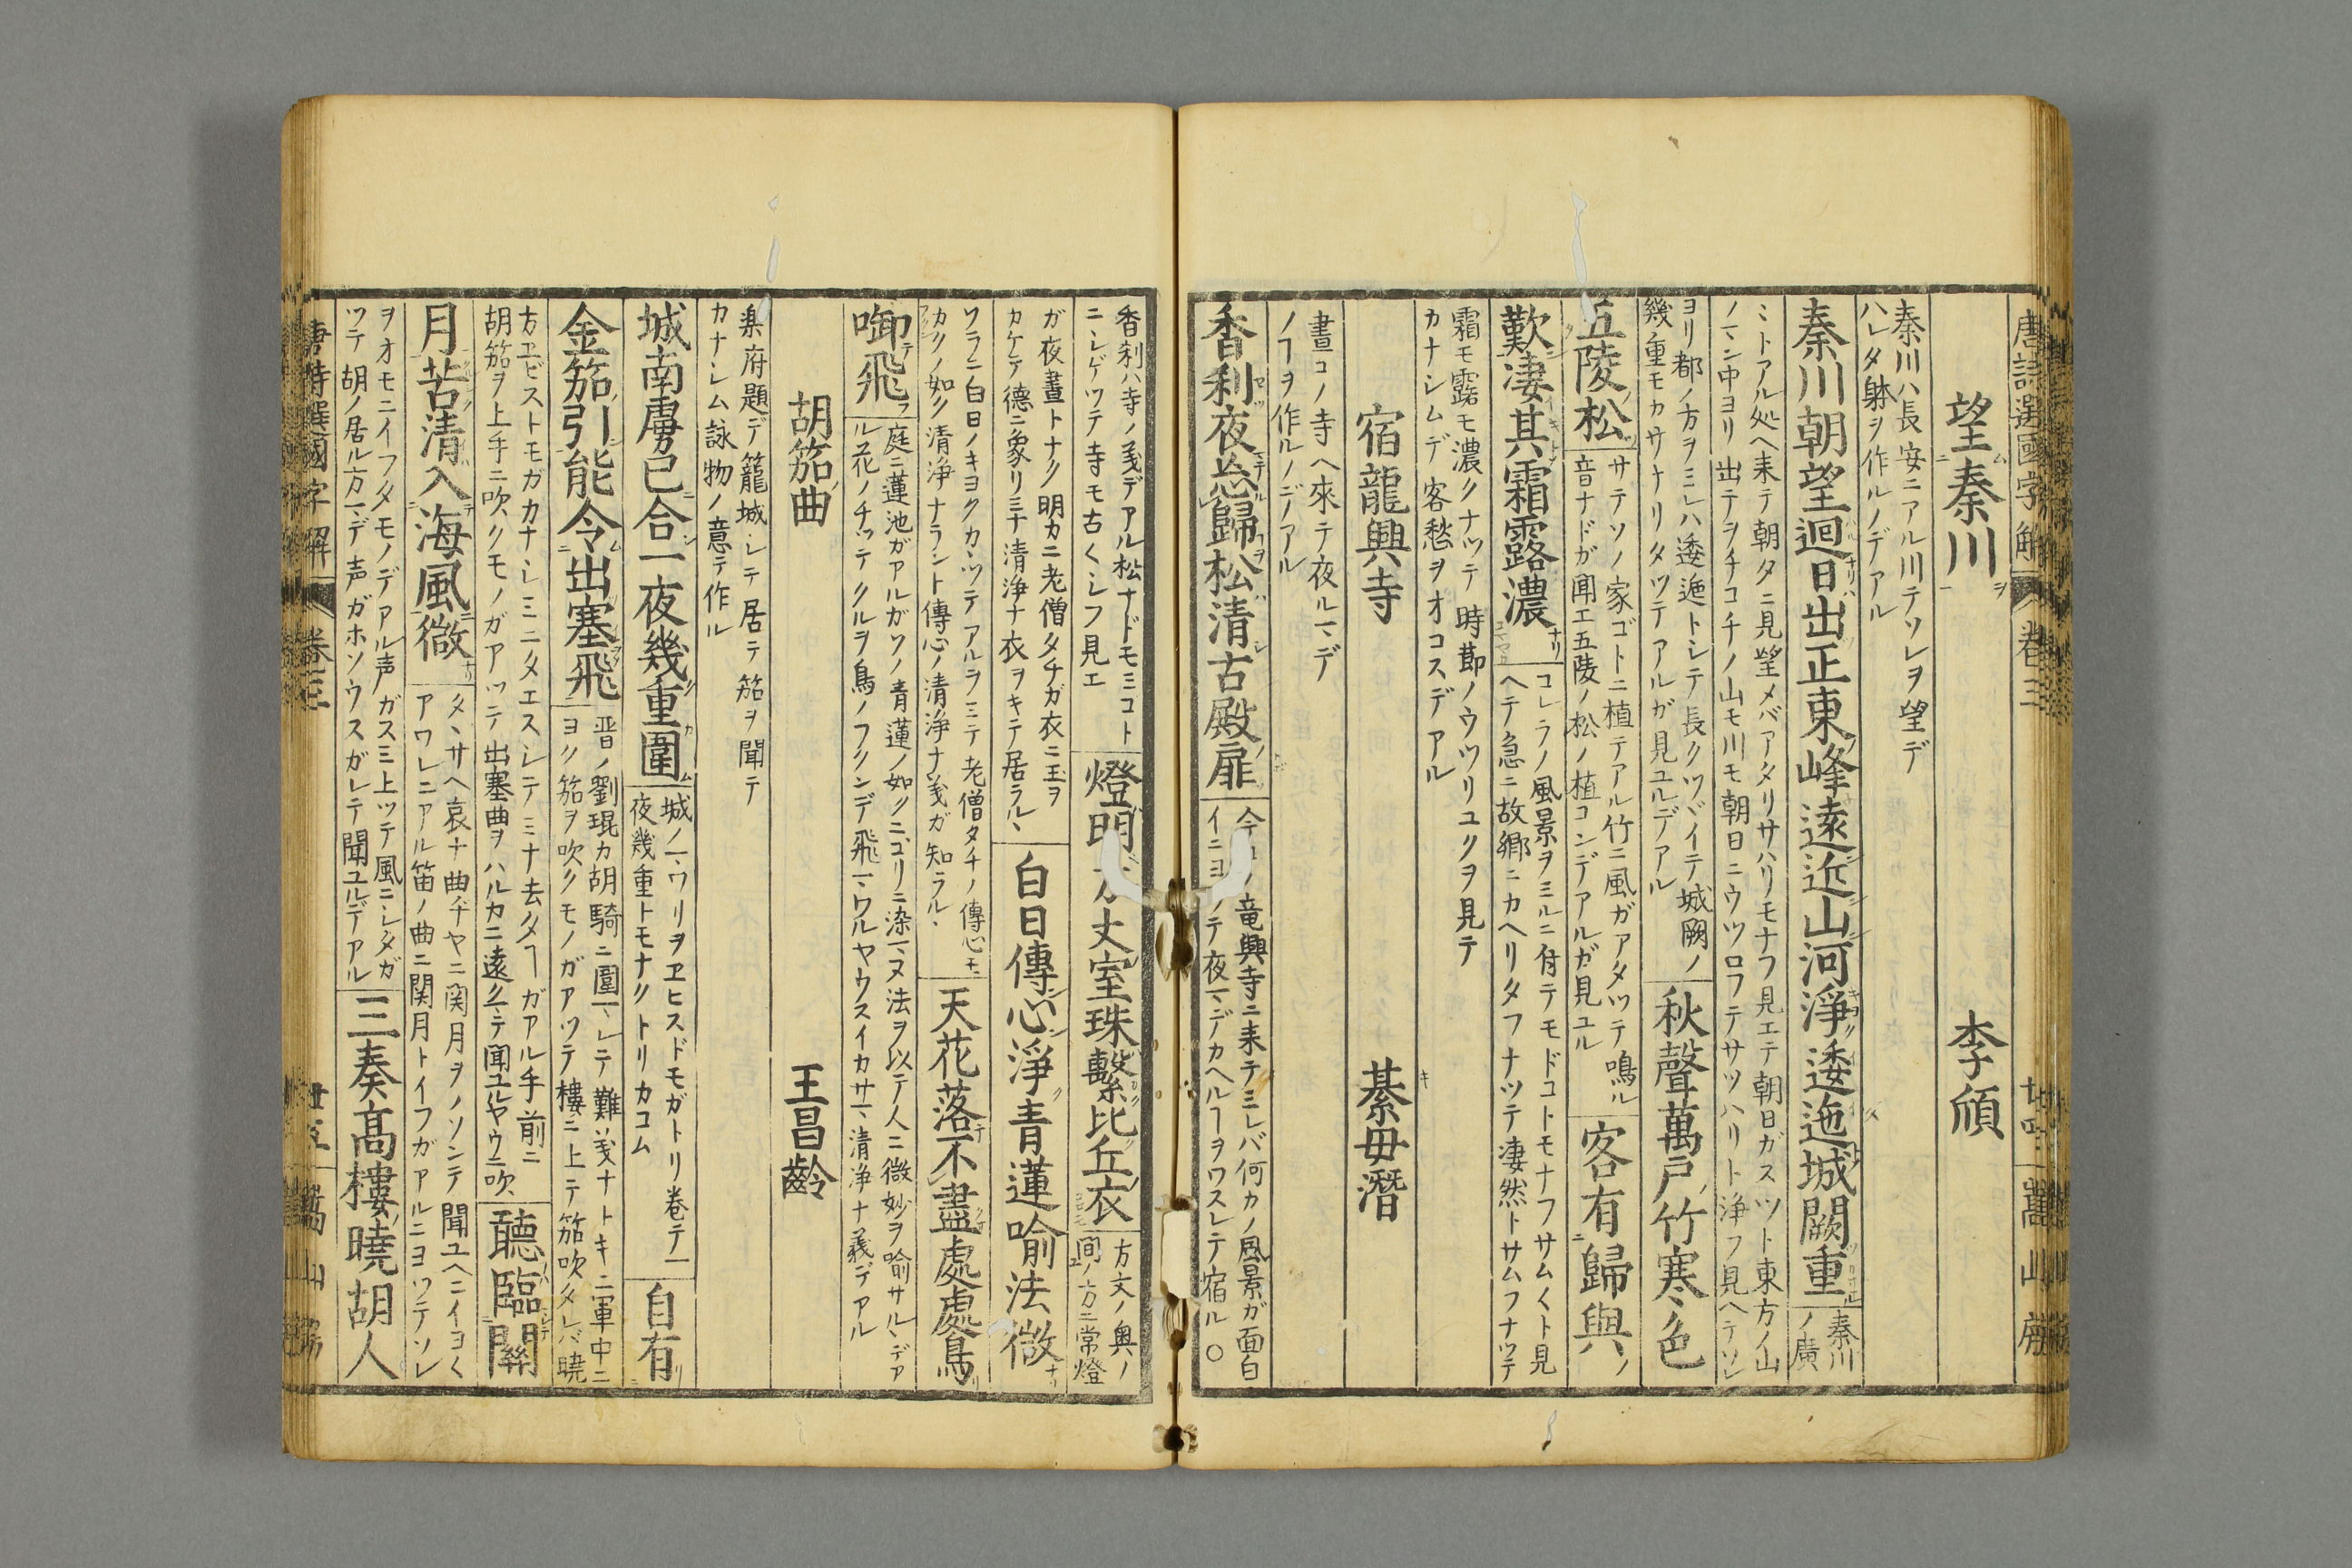 唐詩選國字解 卷三 廿四 嵩山房
望秦川 李頎
秦川ハ長安ニアル川テソレヲ望デ
ハレタ躰ヲ作ルノデアル
秦川朝望迥日出正東峰遠近山河淨逶迤城闕重
秦川ノ廣
ミトアル処ヘ来テ朝タニ見望メバアタリサハリモナフ見エテ朝日ガスツト東方ノ山
ノマン中ヨリ出テヲチコチノ山モ川モ朝日ニウツロフテサツハリト浄フ見ヘテソレ
ヨリ都ノ方ヲミレハ逶迤トシテ長クツヾイテ城闕ノ
幾重モカサナリタツテアルガ見ユルデアル
秋聲萬戸竹寒色
五陵松
サテソノ家ゴトニ植テアル竹ニ風ガアタツテ鳴ル
音ナドガ聞エ五陵ノ松ノ植コンデアルガ見ユル
客有歸與
歎凄其霜露濃
コレラノ風景ヲミルニ付テモドコトモナフサムクト見
ヘテ急ニ故郷ニカヘリタフナツテ凄然トサムフナツテ
霜モ露モ濃クナツテ時節ノウツリユクヲ見テ
カナシムデ客愁ヲオコスデアル
宿龍興寺 綦毋潛
晝コノ寺ヘ來テ夜ルマデ
ノヿヲ作ルノデアル
香刹夜忘歸松清古殿扉
今コノ竜興寺ニ来テミレバ何カノ風景ガ面白
イニヨツテ夜マデカヘルヿヲワスレテ宿ル○
香刹ハ寺ノ義デアル松ナドモミコト
ニシゲツテ寺モ古クシフ見エ
燈明方丈室珠繫比丘衣
方丈ノ奥ノ
間ノ方ニ常燈
ガ夜晝トナク明カニ老僧タチガ衣ニ玉ヲ
カケテ德ニ象リ三ナ清浄ナ衣ヲキテ居ラル
白日傳心淨青蓮喩法微
ソラニ白日ノキヨクカヽツテアルヲミテ老僧タチノ傳心モ
カクノ如ク清浄ナラント傳心ノ清浄ナ義ガ知ラル
天花落不盡處處鳥
啣飛
庭ニ蓮池ガアルガソノ青蓮ノ如クニゴリニ染マヌ法ヲ以テ人ニ微妙ヲ喩サルデア
ル花ノチツテクルヲ鳥ノフクンデ飛マワルヤウスイカサマ清浄ナ義デアル
胡笳曲 王昌齡
楽府題デ籠城シテ居テ笳ヲ聞テ
カナシム詠物ノ意テ作ル
城南虜已合一夜幾重圍
城ノマワリヲヱヒスドモガトリ卷テ一
夜幾重トモナクトリカコム
自有
金笳引能令出塞飛
晋ノ劉琨カ胡騎ニ圍マレテ難義ナトキニ軍中ニ
ヨク笳ヲ吹クモノガアツテ樓ニ上テ笳吹タレバ暁
方ヱビストモガカナシミニタエスシテミナ去タヿガアル手前ニ
胡笳ヲ上手ニ吹クモノガアツテ出塞曲ヲハルカニ遠クテ聞ユルヤウニ吹
聽臨關
月苦清入海風微
タヽサヘ哀ナ曲ヂヤニ関月ヲノソンテ聞ユヘニイヨく
アワレニアル笛ノ曲ニ関月トイフガアルニヨツテソレ
ヲオモニイフタモノデアル声ガスミ上ツテ風ニシタガ
ツテ胡ノ居ル方マデ声ガホソウスガレテ聞ユルデアル
三奏髙樓曉胡人
唐詩選國字解 卷三 廿五 嵩山房